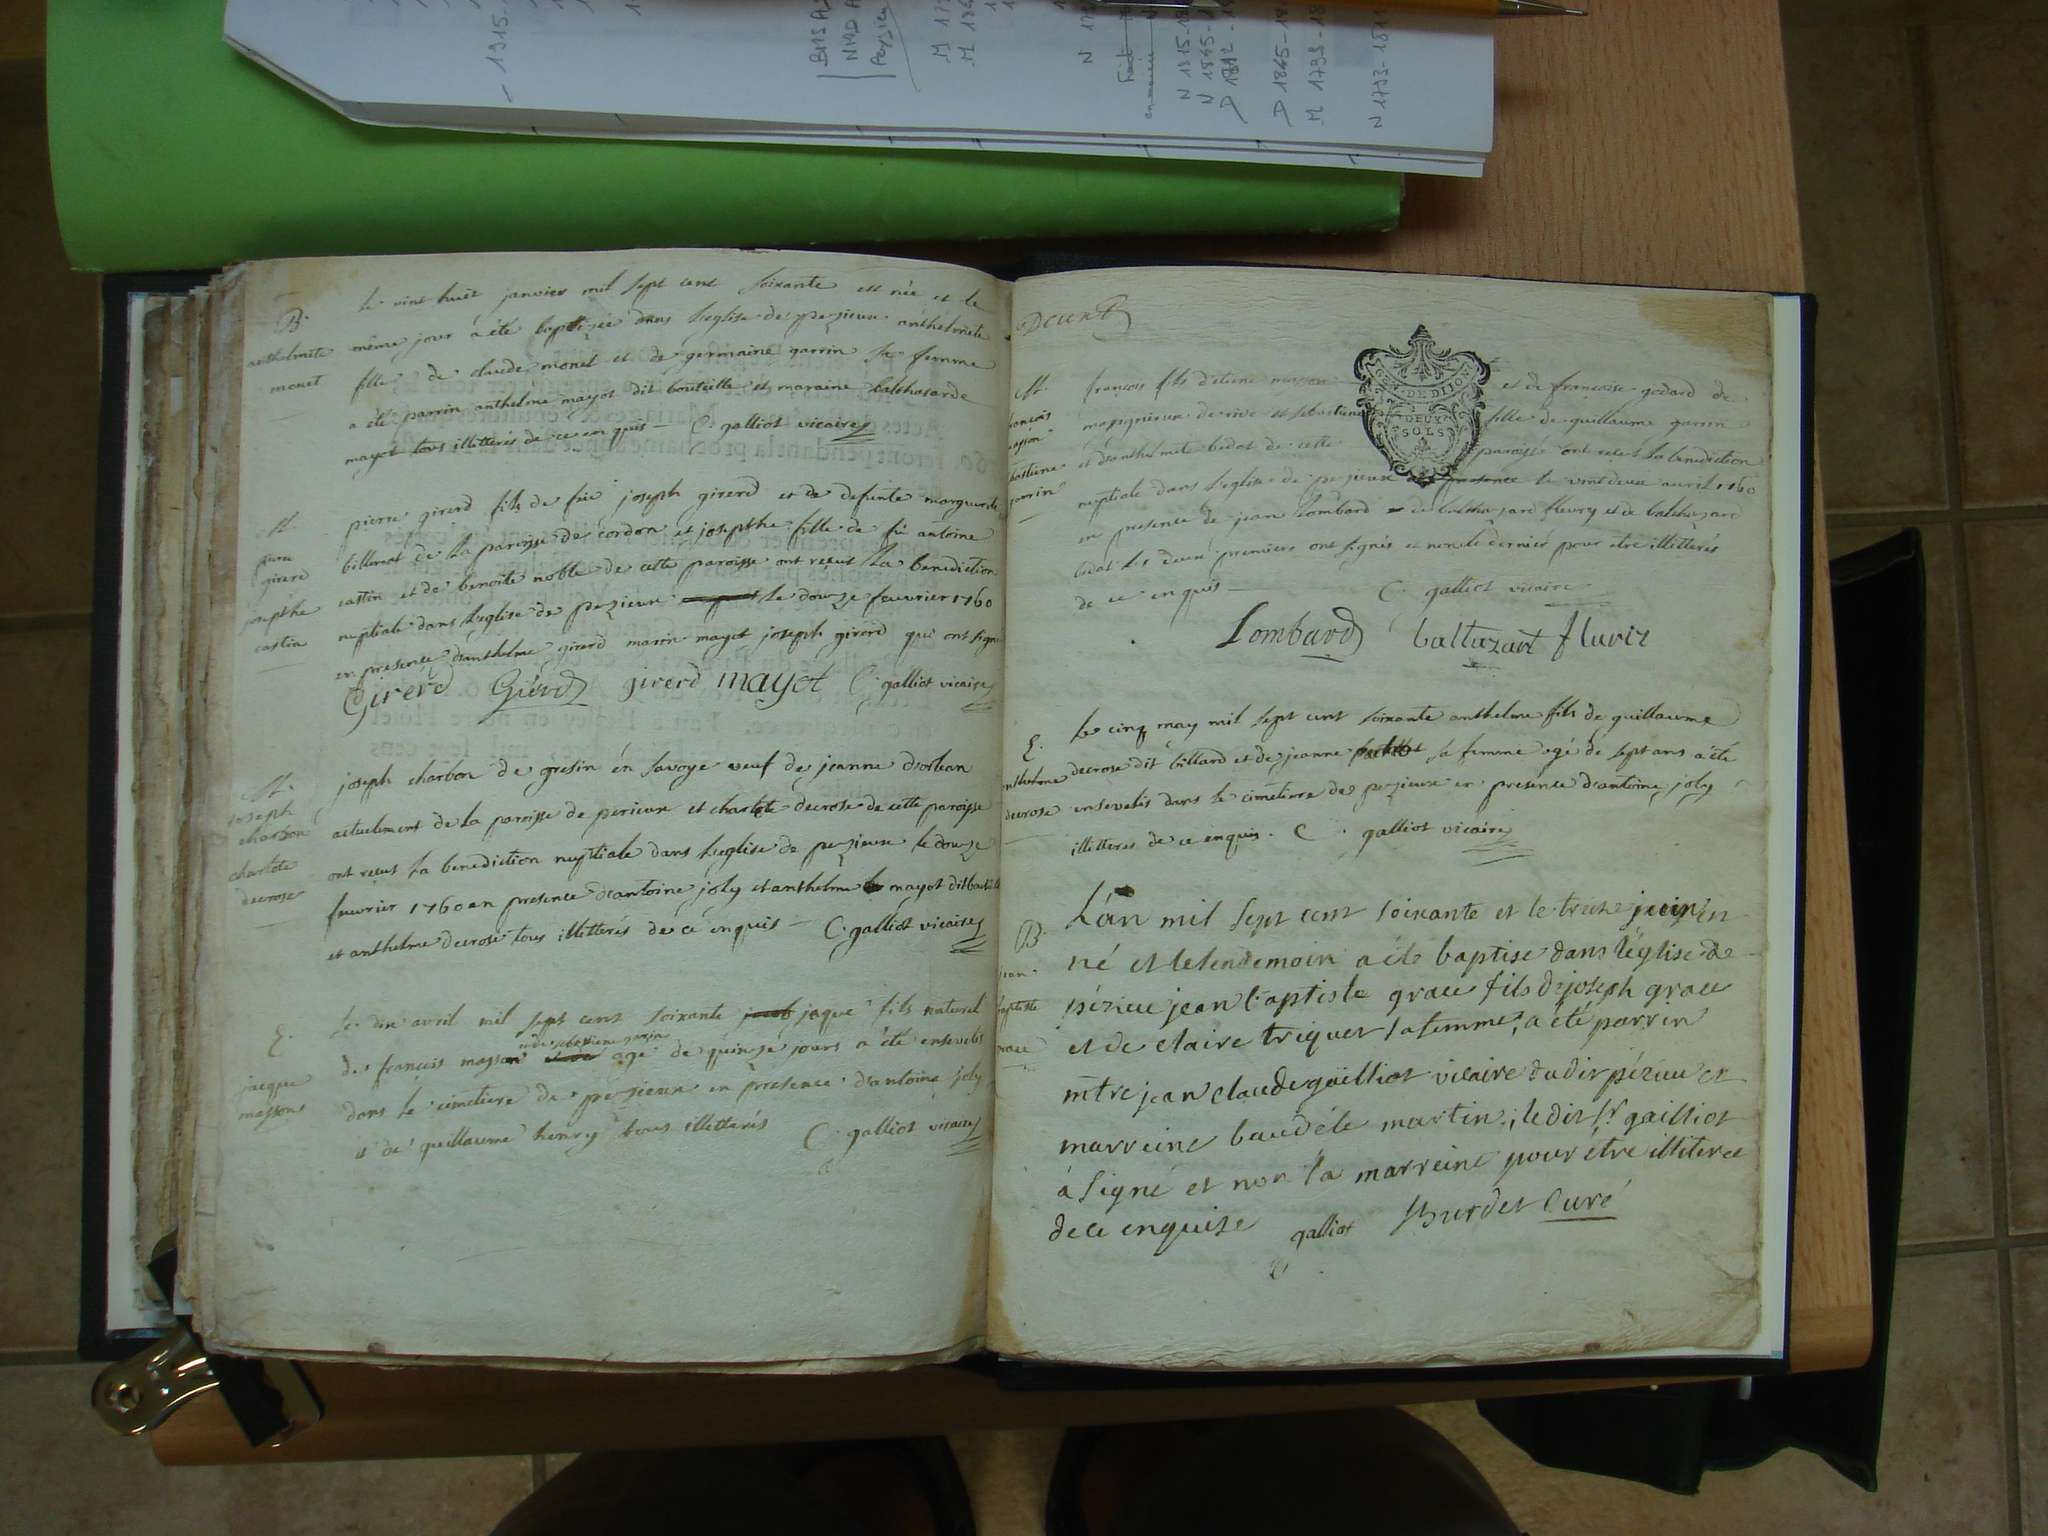 B.
anthelmete
monet
le vint huit janvier mil sept cent soixante est née et le
même jour a été baptizée dans l'eglise de pezieux anthelmete
fille de claude monet et de germaine garrin sa femme
a été parrin anthelme mayot dit bouteille et maraine balthasarde
mayot tous illitterés de ce enquis — C. galliot vicaire
M.
girerd
josepthe
castin
pierre girerd fils de feu joseph girerd et de defunte marguerite
billemat de la paroisse de cordon et josepthe fille de feu antoine
castin et de benoite noble de cette paroisse ont receut la benediction
nuptiale dans l'eglise de pezieux le douze feuvrier 1760
en presence d'anthelme girerd marin mayot joseph girerd qui ont signé
Girerd Girerd girerd mayot C. galliot vicaire
M.
joseph
charbon
charlote
decrose
joseph charbon de gresin en savoye veuf de jeanne d'orlean
actuelement de la paroisse de perieux et charlote decrose de cette paroisse
ont receut la benediction nuptiale dans l'eglise de pezieux le douze
feuvrier 1760 en presence d'antoine joly et anthelme mayot dit
et anthelme decrose tous illitterés de ce enquis — C. galliot vicaire
E.
jacque
masson
le dix avril mil sept cent soixante jaque fils naturel
et de sebastiene garrin
de francois masson agé de quinze jours a été enseveli
dans le cimetiere de pezieux en presence d'antoine joly
et de guillaume henry tous illitterés C. galliot vicaire
M.
francois
masson
garrin
françois fils d'etiene masson et de françoise godard de
magnieux de rive et sebastiene fille de guillaume garrin
et d'anthelmete bidat de cette paroisse ont receut la benediction
nuptiale dans l'eglise de pezieux le vint deux avril 1760
en presence de jean lombard de balthazard fleury et de balthazard
bidat les deux premiers ont signés et non le dernier pour etre illitterés
de ce enquis — C. galliot vicaire
GEN. DE DIJON
DEUX
SOLS
Lombard baltazart fluric
E.
anthelme
decrose
le cinq may mil sept cent soixante anthelme fils de guillaume
decrose dit billard et de jeanne sa femme agé de sept ans a été
ensevelis dans le cimetiere de pezieux en presence d'antoine joly
illitteres de ce enquis. C. galliot vicaire
B.
jean
baptiste
grace
L'an mil sept cent soixante et le treize juin est
né et le lendemoin a été baptise dans l'église de
pézieu jean baptiste grace fils de joseph grace
et de claire triquet sa femme, a été parrin
mtre jean claude galliot vicaire dudit pézieu et
marreine baudéle martin, ledit Sr galliot
a signé et non la marreine pour étre illiteree
de ce enquise galliot Burdet Curé
BMS
NMD
M 17
N 17
N 1815-18
N 1865-1
D 1812-1
D 1865-18
M 1793-18
N 1793-181
- 1915-